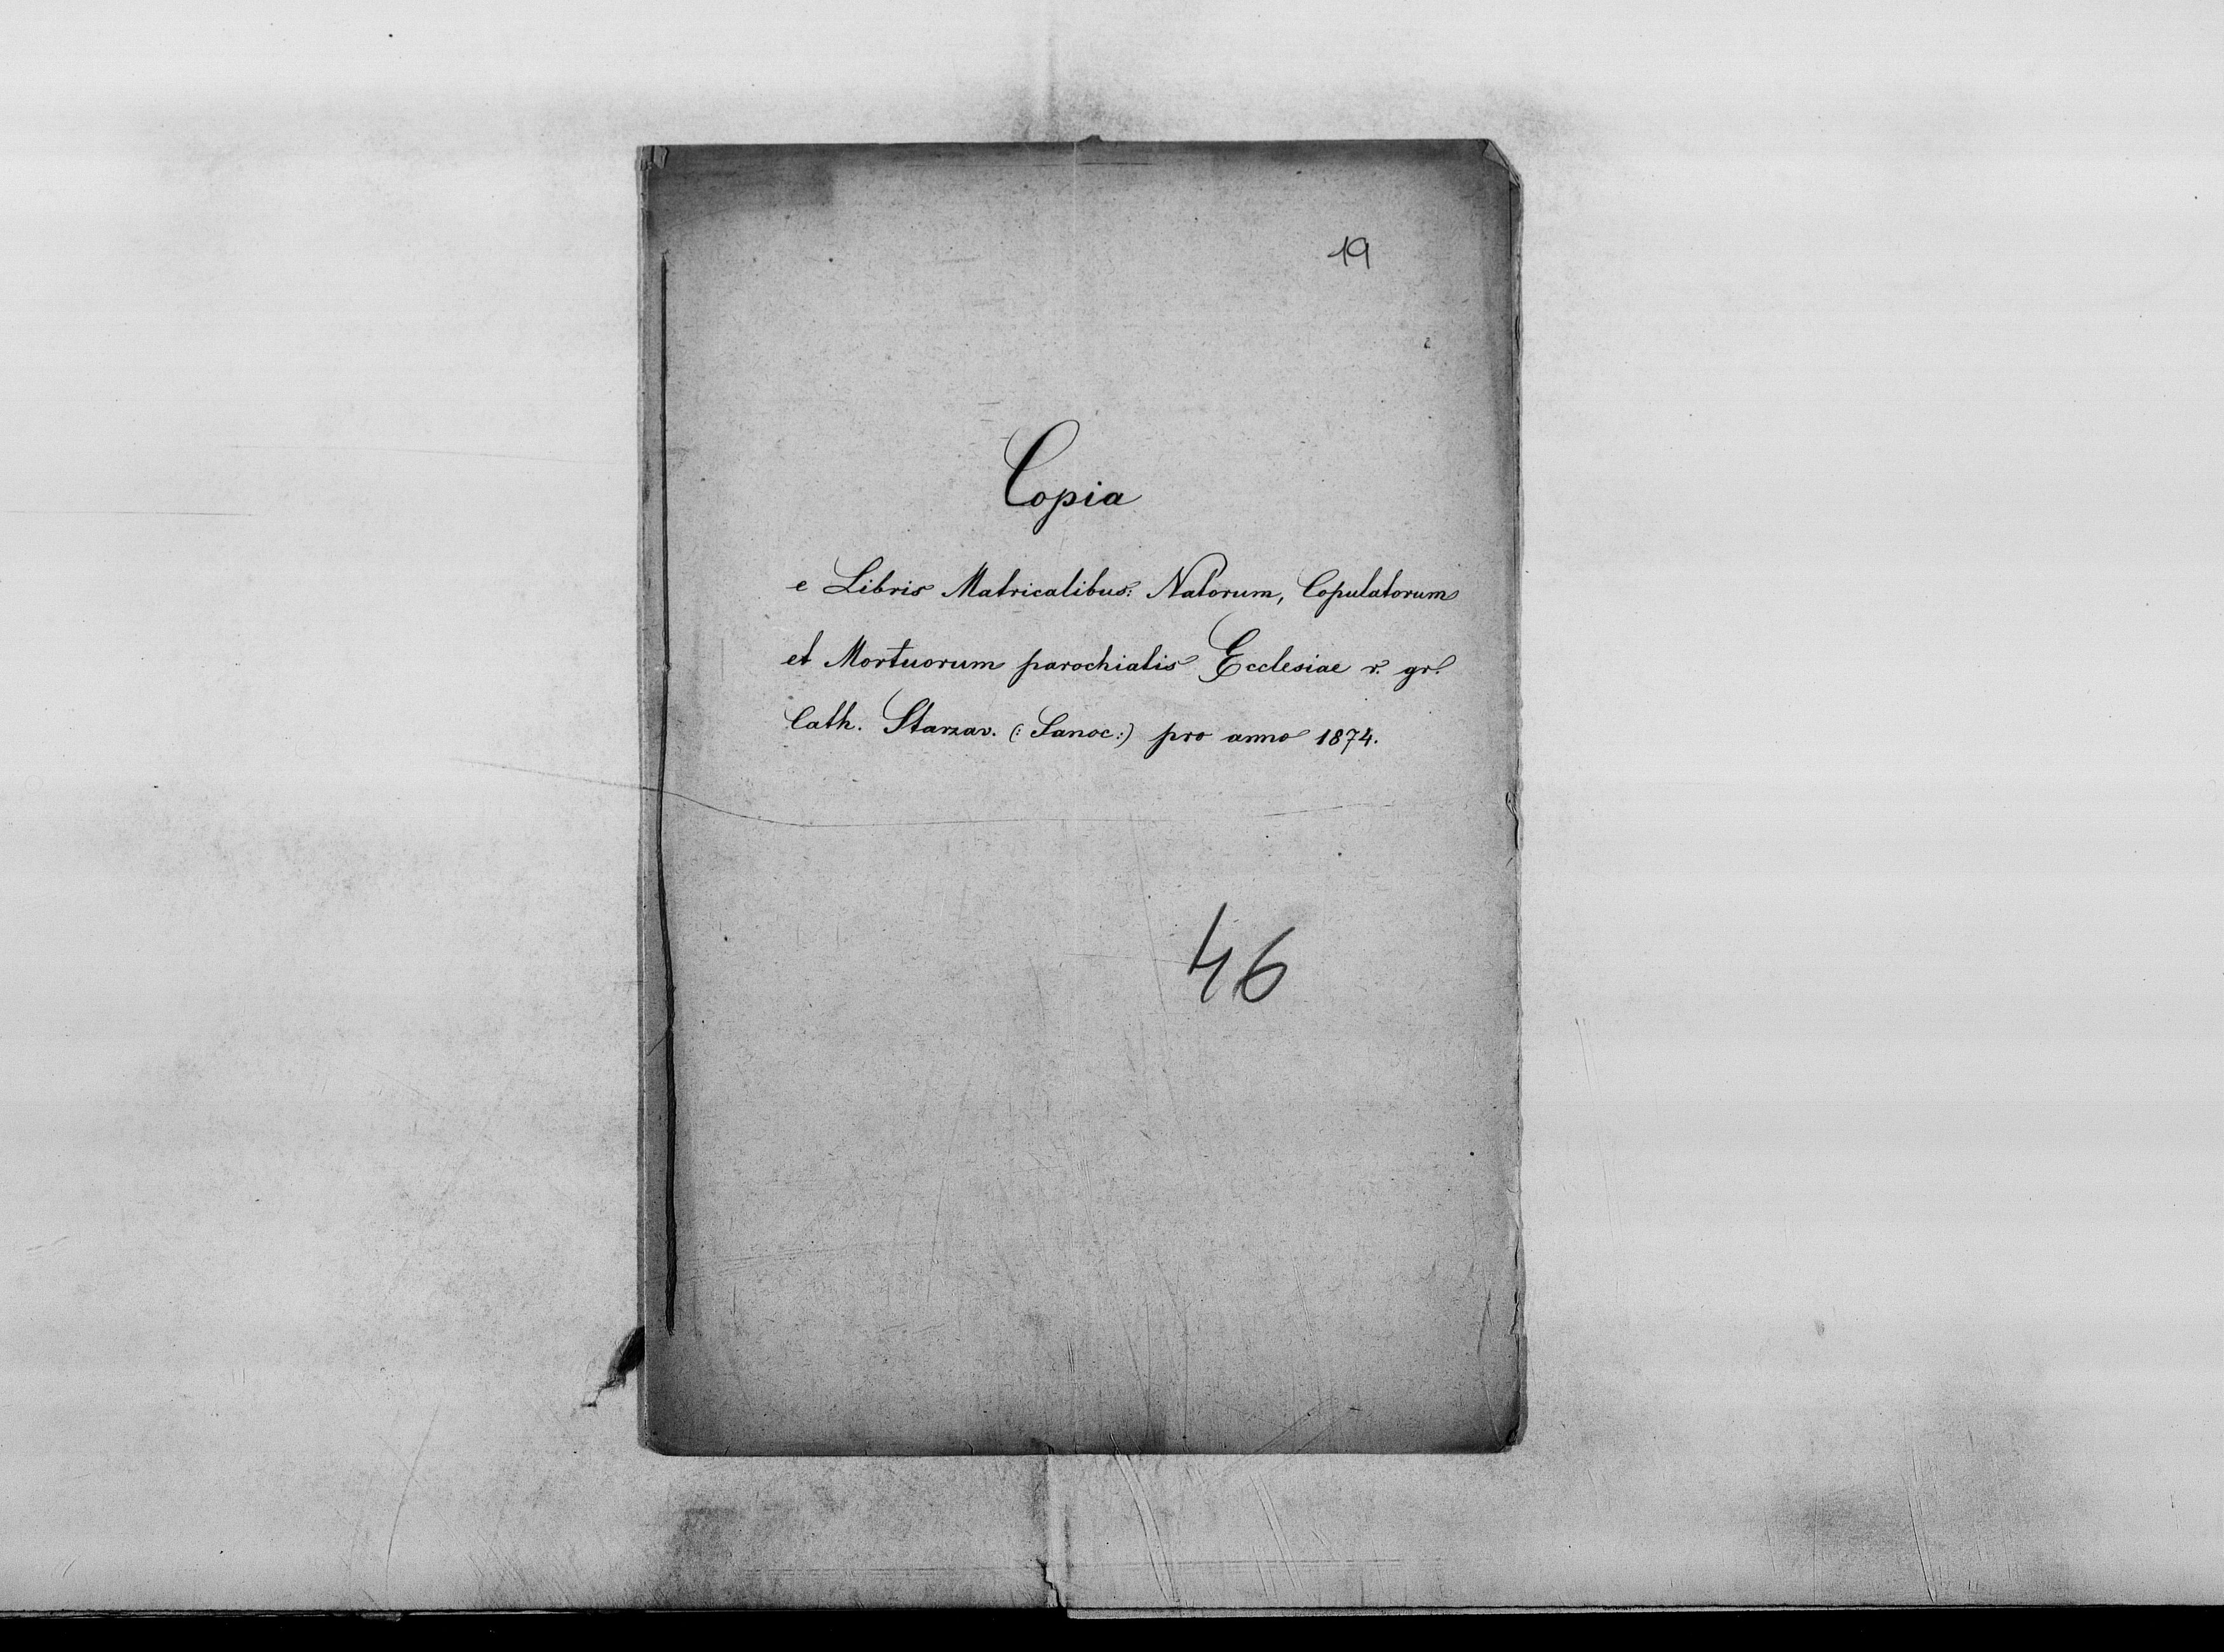 19
Copia
e Libris Matricalibus: Natorum, Copulatorum
et Mortuorum parochialis Ecclesiae r. gr.
Cath. Starzav. (: Sanoc :) pro anno 1874.
46